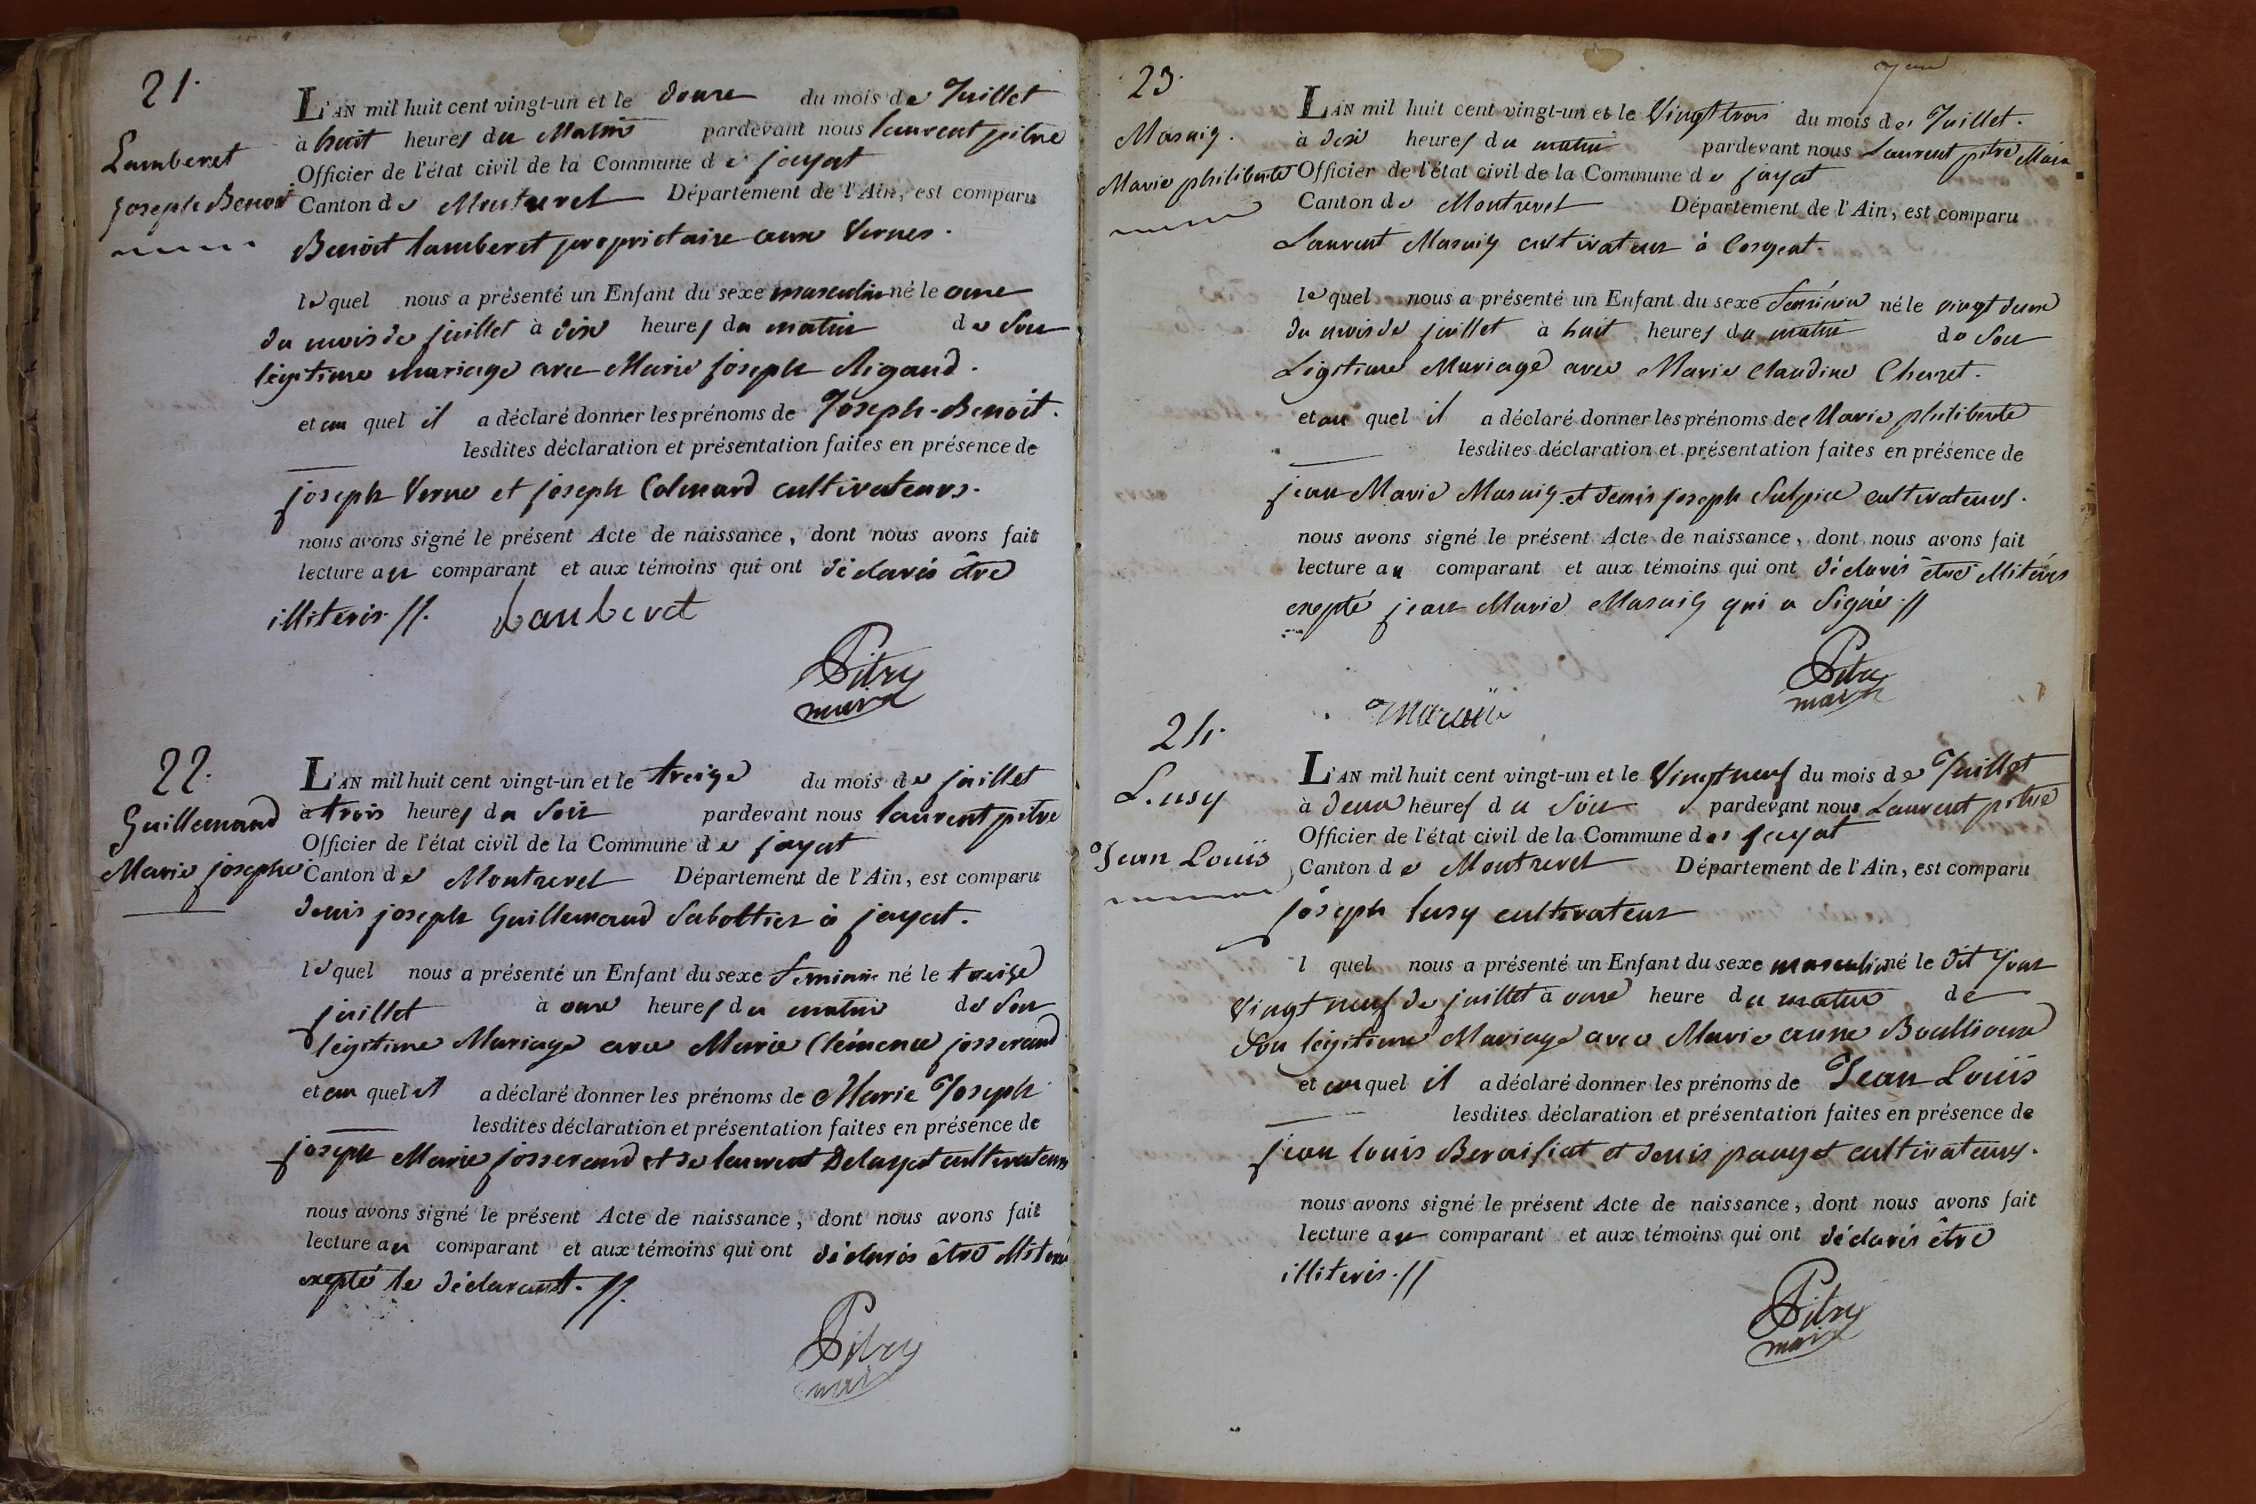 21.
Lamberet
Joseph Benoit
L'AN mil huit cent vingt-un et le douze du mois de Juillet
à huit heures du Matin pardevant nous laurent pitre
Officier de l'état civil de la Commune de jayat
Canton de Montrevel Département de l'Ain, est comparu
Benoit lamberet proprietaire aux Vernes.
lequel nous a présenté un Enfant du sexe masculin né le onze
du mois de juillet à dix heures du matin de son
légitime mariage avec Marie joseph Rigaud.
et au quel il a déclaré donner les prénoms de Joseph-Benoit.
lesdites déclaration et présentation faites en présence de
joseph Verne et joseph Colmard cultivateurs.
nous avons signé le présent Acte de naissance, dont nous avons fait
lecture au comparant et aux témoins qui ont déclarés être
illiterés.//. Lamberet
Pitre
maire
22.
Guillemaud
Marie josephe
L'AN mil huit cent vingt-un et le treize du mois de juillet
à trois heures du Soir pardevant nous laurent pitre
Officier de l'état civil de la Commune de jayat
Canton de Montrevel Département de l'Ain, est comparu
denis joseph Guillemaud Sabottier à jayat.
lequel nous a présenté un Enfant du sexe feminin né le treize
juillet à onze heures du matin de son
légitime Mariage avec Marie Clémence josserand
et au quel il a déclaré donner les prénoms de Marie Joseph
lesdites déclaration et présentation faites en présence de
joseph Marie josserand et de laurent Delayat cultivateurs
nous avons signé le présent Acte de naissance, dont nous avons fait
lecture au comparant et aux témoins qui ont déclarés être illiteré
exepté le déclarant.//.
Pitre
maire
23.
Mazuiy.
Marie philiberte
L'AN mil huit cent vingt-un et le Vingt trois du mois de Juillet.
à dix heures du matin pardevant nous Laurent pitre Maire
Officier de l'état civil de la Commune de jayat
Canton de Montrevel Département de l'Ain, est comparu
Laurent Mazuiy cultivateur à Cezgeat.
lequel nous a présenté un Enfant du sexe féminin né le vingt deux
du mois de juillet à huit heures du matin de son
Légitime Mariage avec Marie Claudine Chevret.
et au quel il a déclaré donner les prénoms de Marie philiberte
lesdites déclaration et présentation faites en présence de
jean Marie Mazuiy et denis joseph Sulpice cultivateurs.
nous avons signé le présent Acte de naissance, dont nous avons fait
lecture au comparant et aux témoins qui ont déclarés être illiterés
exepté jean Marie Mazuiy qui a Signé.//
Pitre
maire
24.
Lusy
Jean Louis
L'AN mil huit cent vingt-un et le Vingt neuf du mois de Juillet
à deux heures du Soir pardevant nous Laurent pitre
Officier de l'état civil de la Commune de jayat
Canton de Montrevel Département de l'Ain, est comparu
joseph lusy cultivateur
l quel nous a présenté un Enfant du sexe masculin né le dit jour
Vingt neuf de juillet à onze heure du matin de
Son légitime Mariage avec Marie anne Boullioux
et au quel il a déclaré donner les prénoms de Jean Louis
lesdites déclaration et présentation faites en présence de
jean louis Beraifiat et denis pauget cultivateurs.
nous avons signé le présent Acte de naissance, dont nous avons fait
lecture au comparant et aux témoins qui ont déclarés être
illiterés.//
Pitre
maire